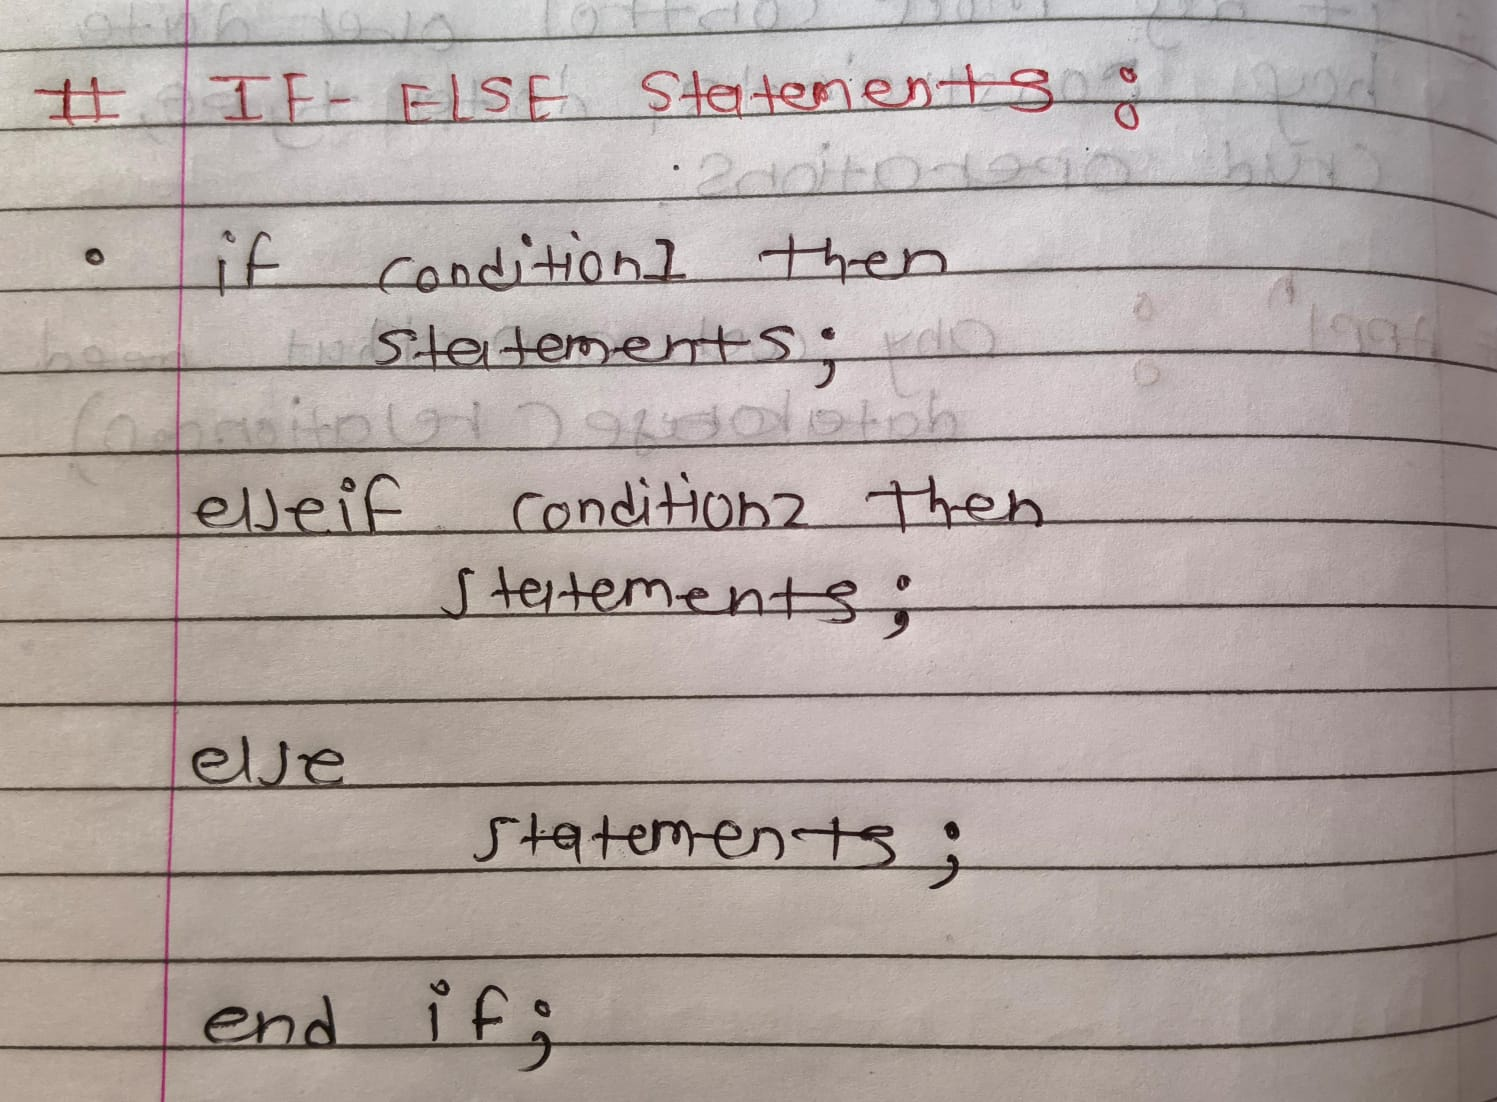 # IF- ELSE Statements :
• if condition1 then
statements;
elseif condition2 then
statements;
else
statements;
end if;